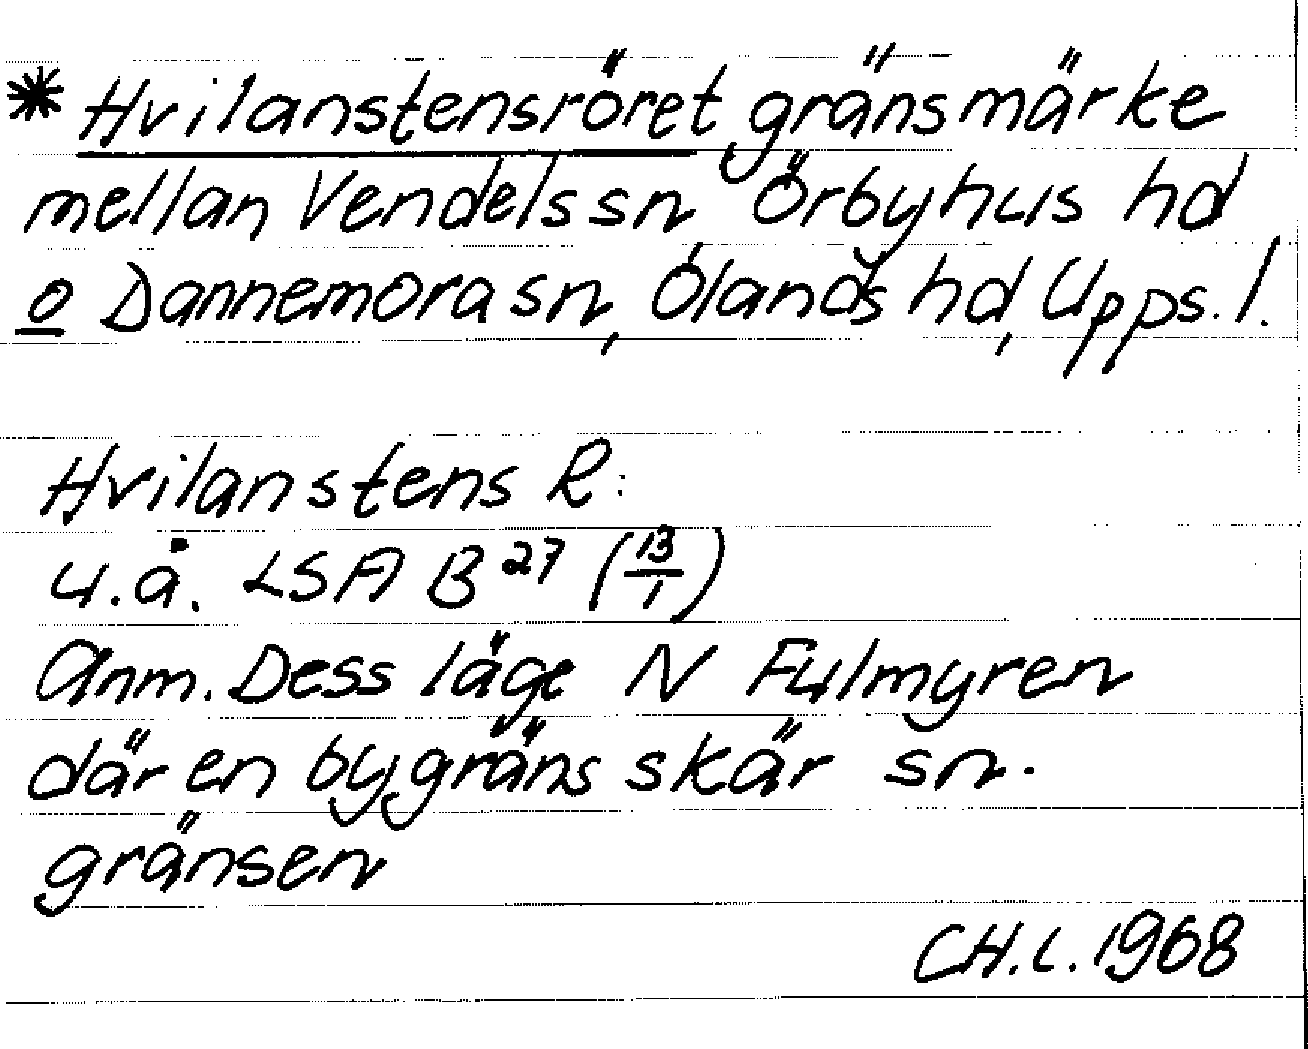 * Hvilanstensröret gränsmärke
mellan Vendels sn, Örbyhus hd
o Dannemora sn, Ölands hd, Upps. l.
Hvilanstens R:
u.å. LSA B 27 (13/1)
Anm. Dess läge N Fulmyren
där en bygräns skär sn.
gränsen
CH.L. 1968